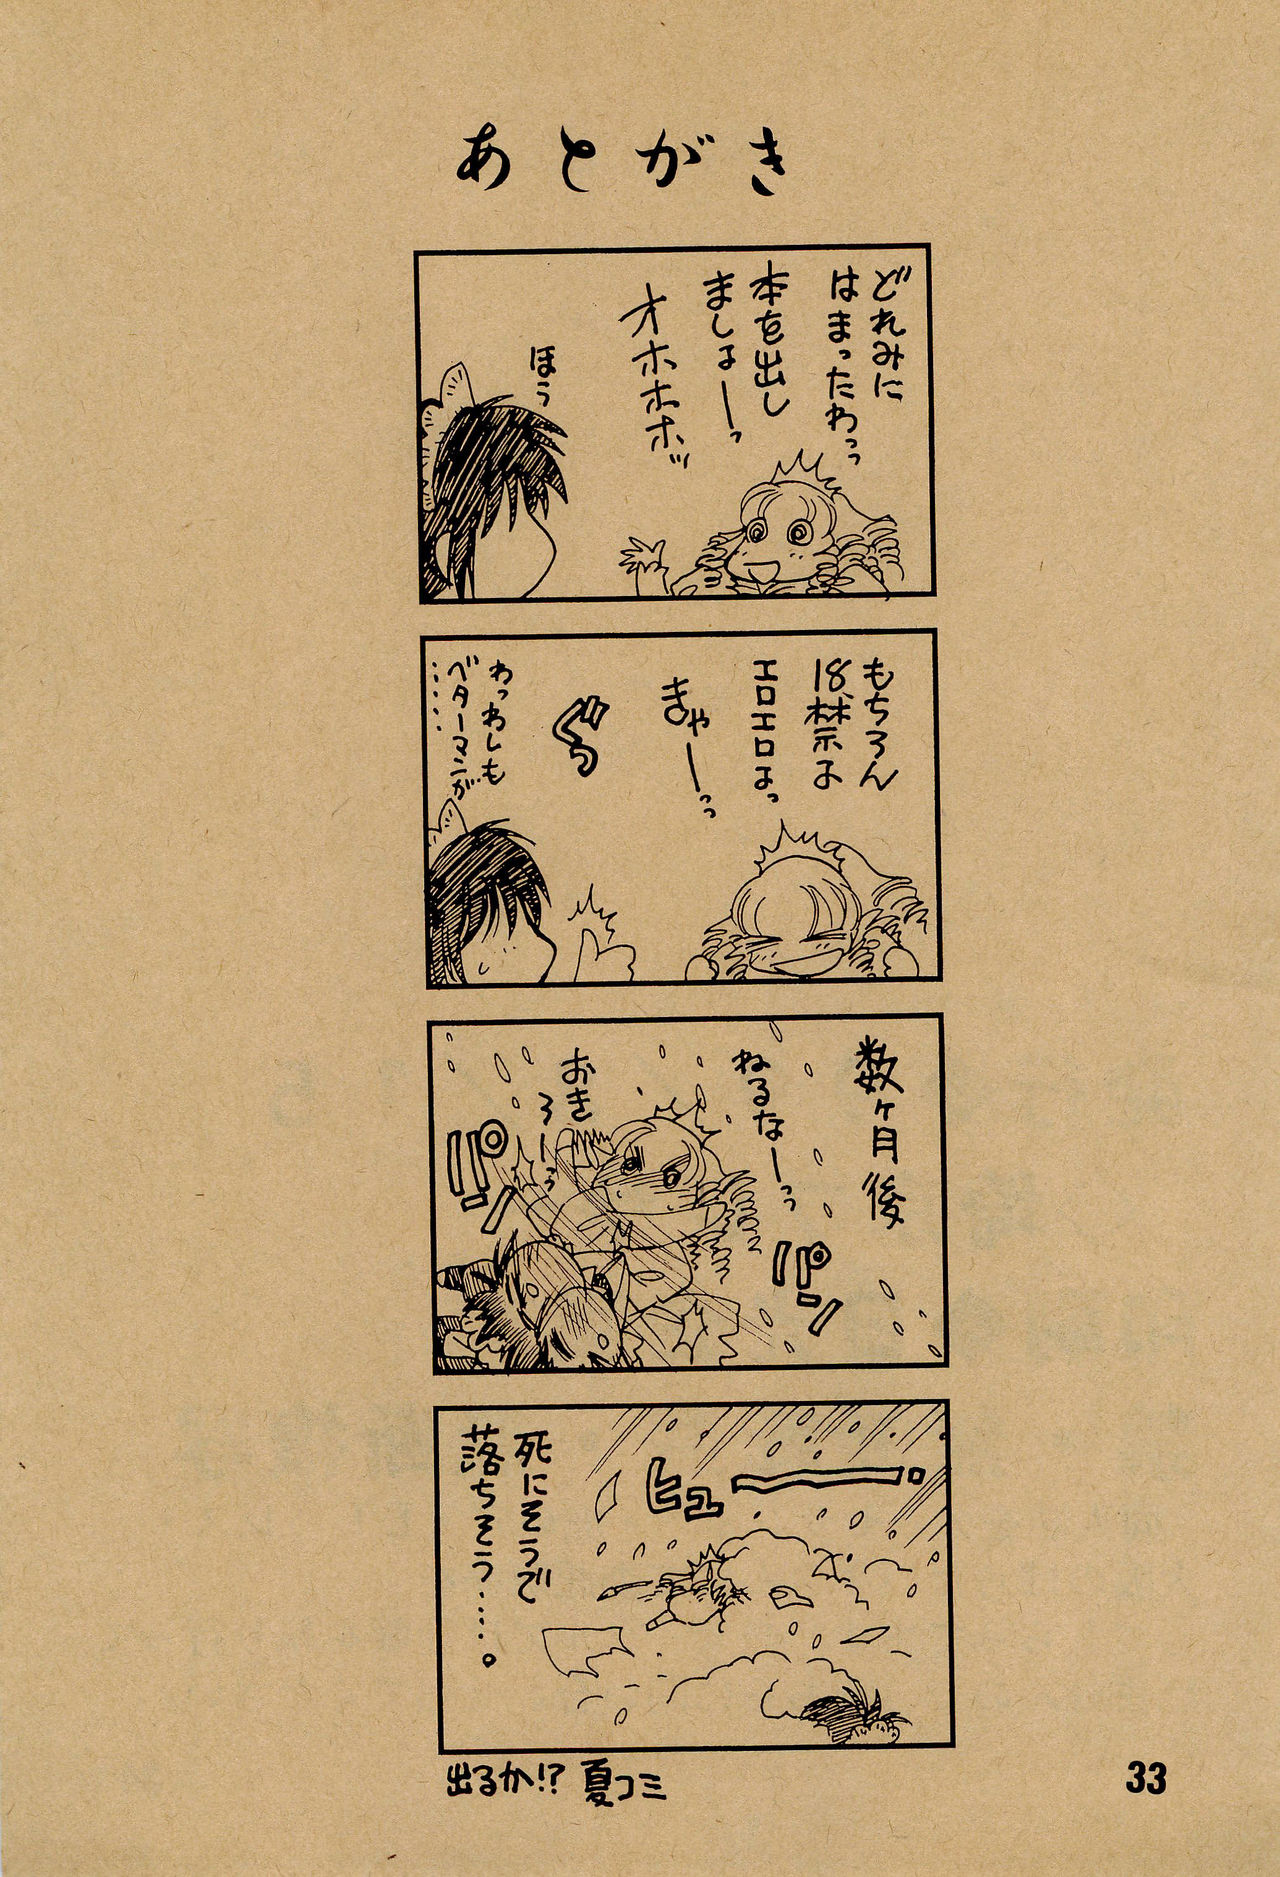 あとがき
どれみに
はまったわっっ
本を出し
ましょーっ
オホホホッ
ほう
もちろん
18禁よ
エロエロよっ
きゃーっっ
ぐっ
わっわしも
ベターマンが
……
数ヶ月後
ねるなーっっ
おき
ろーっっ
パン
パン
ヒュー
死にそうで
落ちそう……。
出るか!? 夏コミ
33